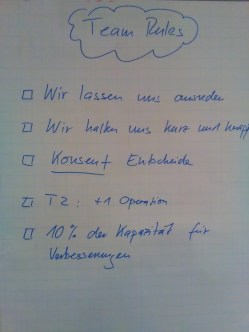 Team Rules
Wir lassen uns ausreden
Wir halten uns kurz und knapp
Konsent Entscheide
T2: +1 Operation
10% der Kapazität für
Verbesserungen